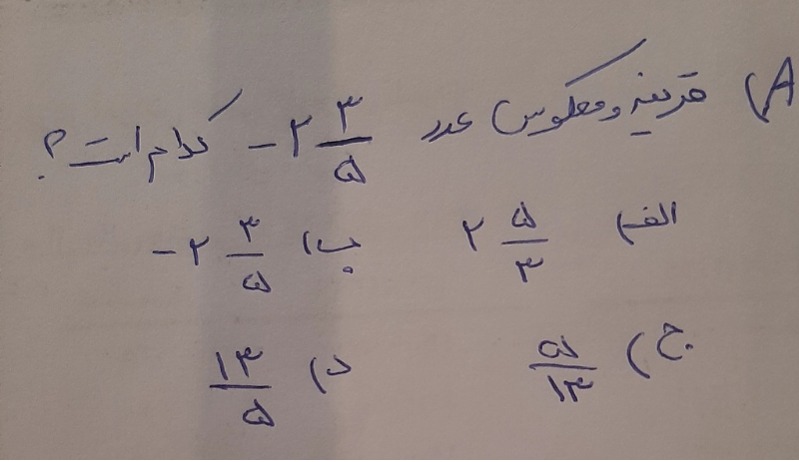 A) قرینه و معکوس عدد -۲ ۳/۵ کدام است؟
الف) ۲ ۵/۳ ب) -۲ ۳/۵
ج) ۵/۱۳ د) ۱۳/۵